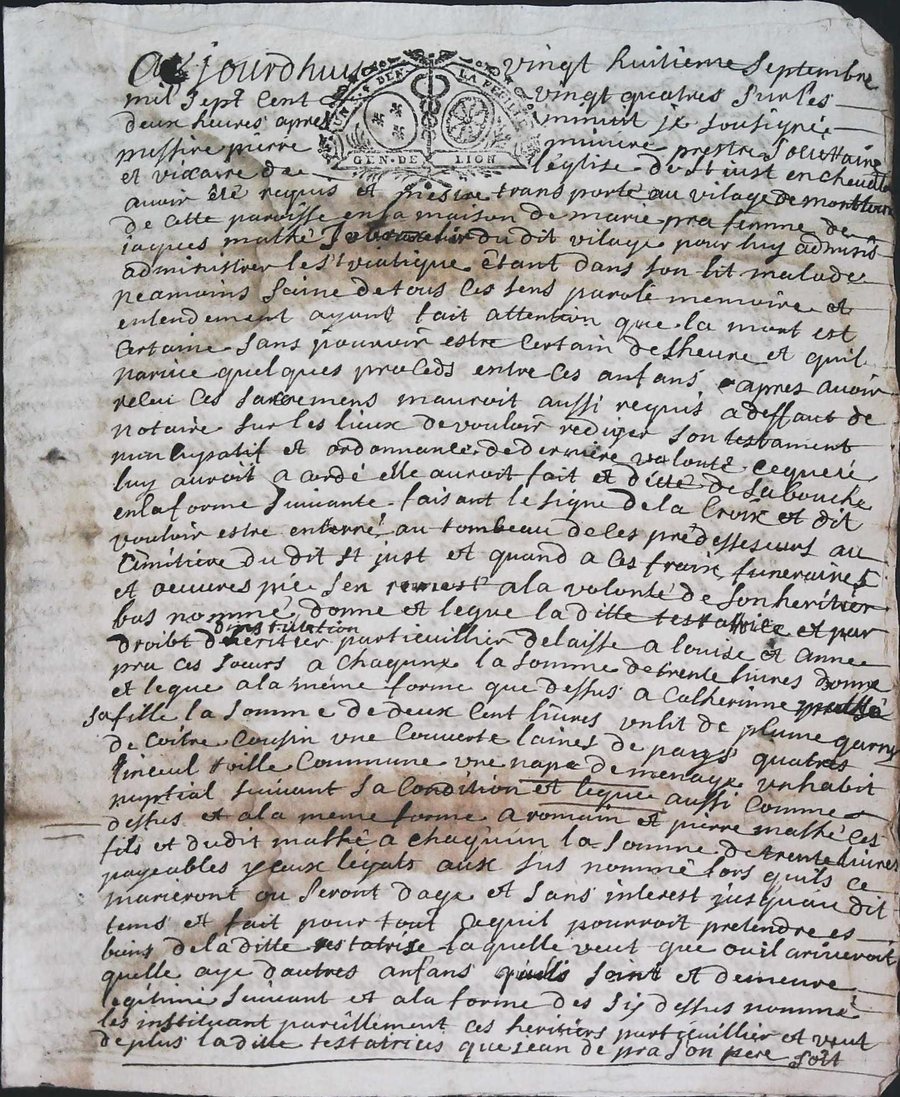 Aujourdhuy vingt huitieme Septembre
mil Sept Cent vingt quatres Sur les
deux heures apres minuit je sousigné
missire pierre miniere prestre Souttaine
et vicaire de l'église de St iust en cheualle
auoir été requis et m'estre transporté au vilage de montloux
de cette paroisse en la maison de marie pra femme de
iaques mathé du dit vilage pour luy adminis
administrer le St viatique êtant dans son lit malade
neamoins Saine de tous ces sens parole memoire et
entendement ayant fait attention que la mort est
Certaine sans pouvoir estre Certain de l'heure et quil
narive quelques proceds entre ces anfans apres avoir
receu ces sacremens mauroit aussi requis a deffaut de
notaire sur les lieux de vouloir rediger son testament
nuncupatif et ordonnance de derniere volonté ceque ie
luy aurois acordé elle auroit fait et ditté de sa bouche
en la forme Suiuante faisant le signe de la Croix et dit
vouloir estre enterré au tombeau de ces predesseseurs au
Cimitiere du dit St just et quand a ces fraix funeraires
et oeuvres pie s'en remest a la volonté de son heritier
bas nommé donne et legue la ditte testatrice et par
droibt d'institution
d'heritier particuillier delaisse a louise et Annee
pra ces soeurs a chaqunx la somme de trente livres donne
et legue a la méme forme que dessus a Catherinne mathé
sa fille la Somme de deux Cent livres un lit de plume garny
de Coitre Cousin vne Couverte laines de pays quatres
linceul toille Commune vne nape de menage un habit
nuptial suiuant sa Condition et legue aussi Comme
dessus et a la meme forme a romain et pierre mathé ces
fils et dudit mathé a chaq'uin la Somme de trente livres
payeables yceux legats aux sus nommé lors quils ce
marieront ou seront d'age et sans interest jusqu'au dit
tems et fait pour tout cequil pourroit pretendre es
biens de la ditte testatrise laquelle veut que ou il ariveroit
quelle aye d'autres anfans quils soint et demeure
legitimé suiuant et a la forme des sy dessus nommé
les instituant pareillement ces heritiers particuillier et veut
de plus la ditte testatrices que jean de pra son pere soit